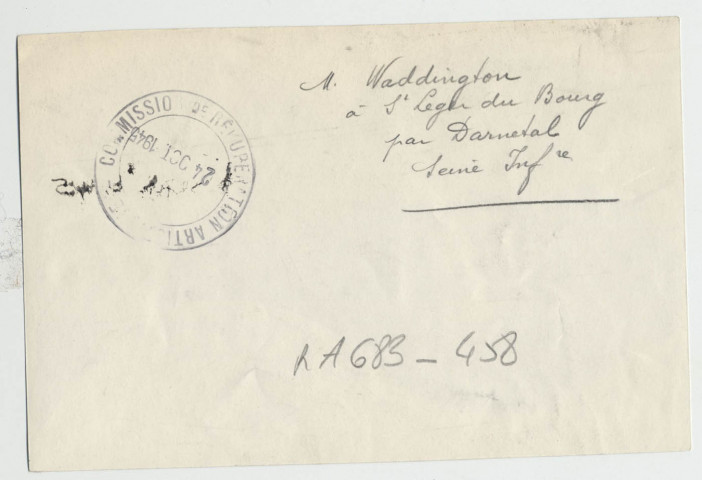 M. Waddington
à St Leger du Bourg
par Darnetal
Seine Infre
COMMISSION DE RÉCUPÉRATION ARTI
24 OCT 1945
RA683 - 458